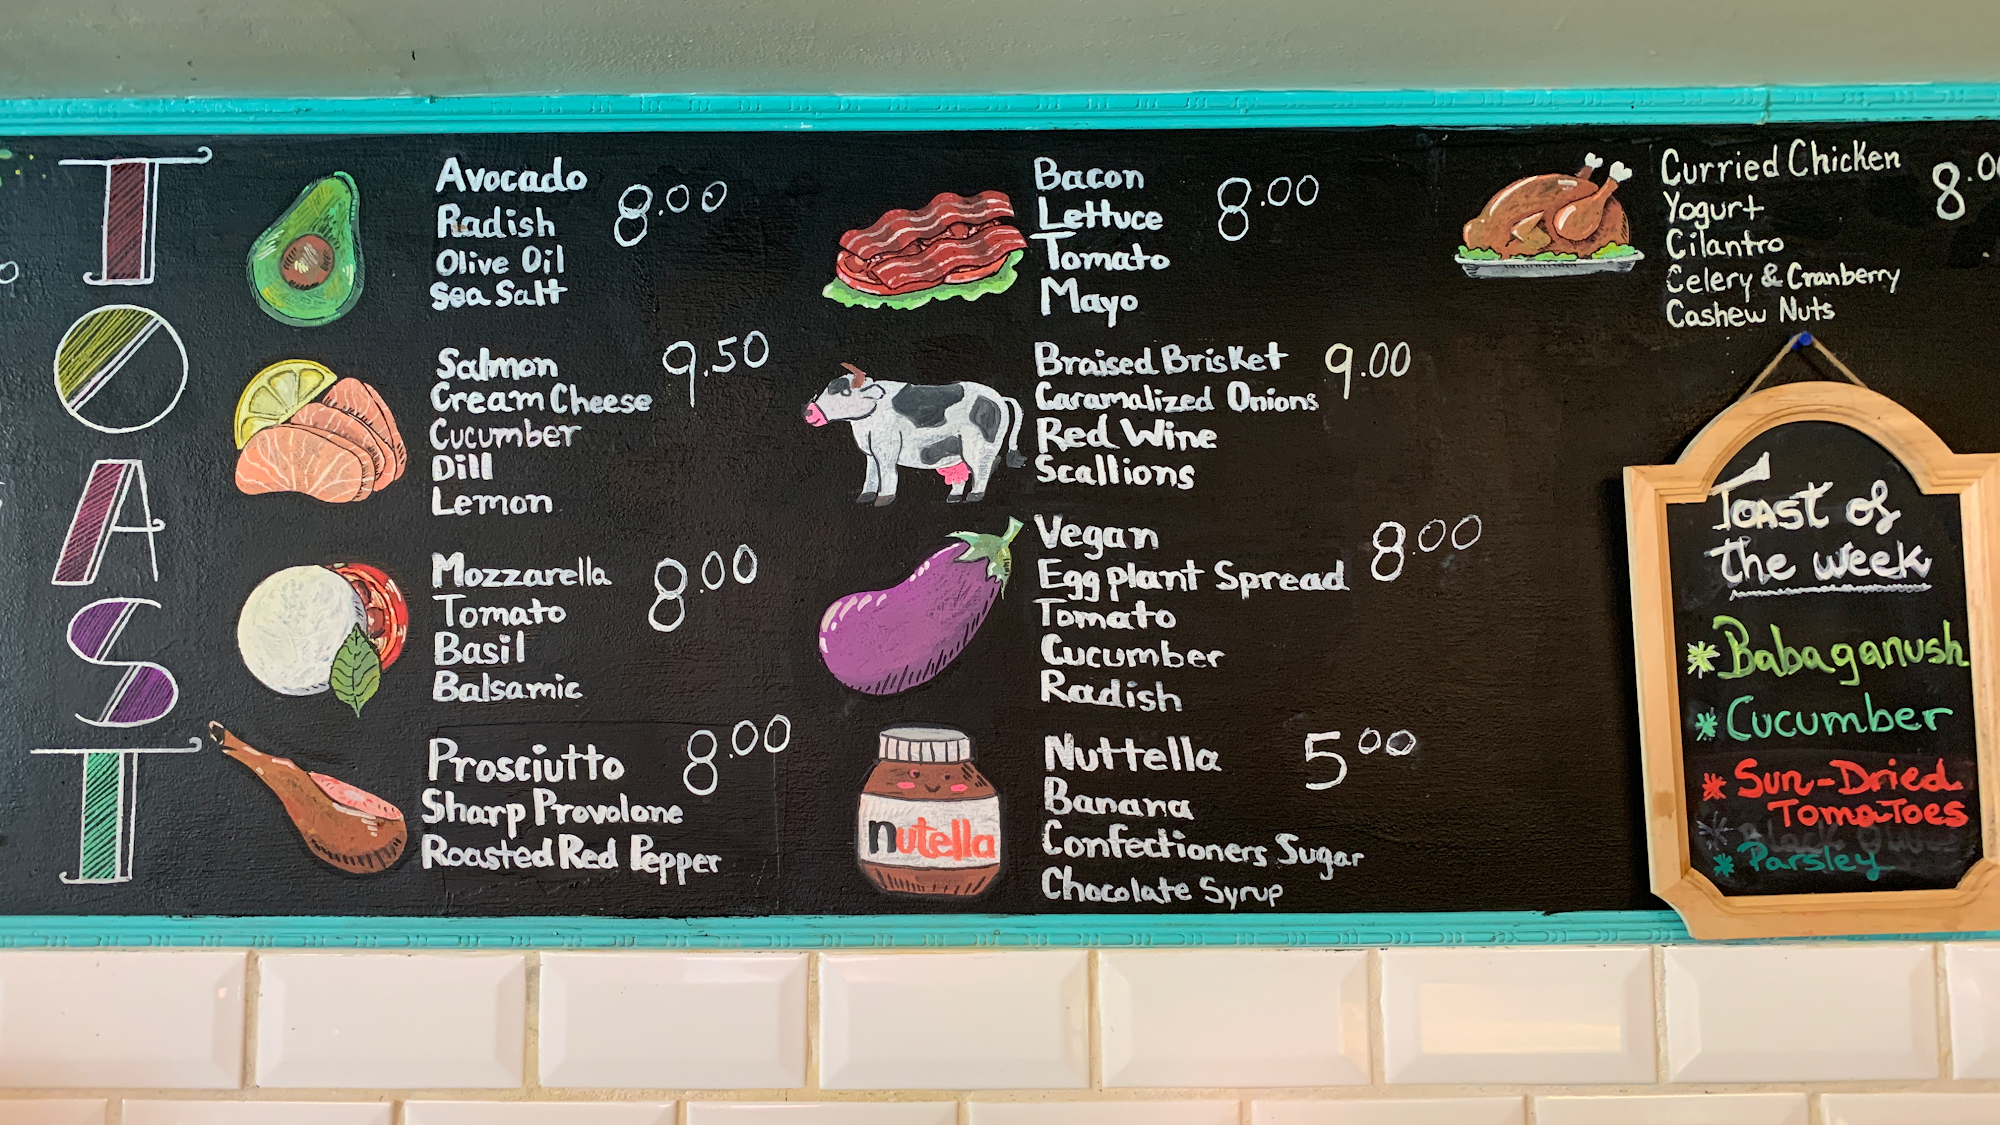 TOAST
Avocado 8.00
Radish
Olive Oil
Sea Salt
Salmon 9.50
Cream Cheese
Cucumber
Dill
Lemon
Mozzarella 8.00
Tomato
Basil
Balsamic
Prosciutto 8.00
Sharp Provolone
Roasted Red Pepper
Bacon 8.00
Lettuce
Tomato
Mayo
Braised Brisket 9.00
Caramalized Onions
Red Wine
Scallions
Vegan 8.00
Egg plant Spread
Tomato
Cucumber
Radish
nutella
Nuttella 5.00
Banana
Confectioners Sugar
Chocolate Syrup
Curried Chicken 8.00
Yogurt
Cilantro
Celery & Cranberry
Cashew Nuts
Toast of
the week
* Babaganush
* Cucumber
* Sun-Dried
Tomatoes
* Parsley